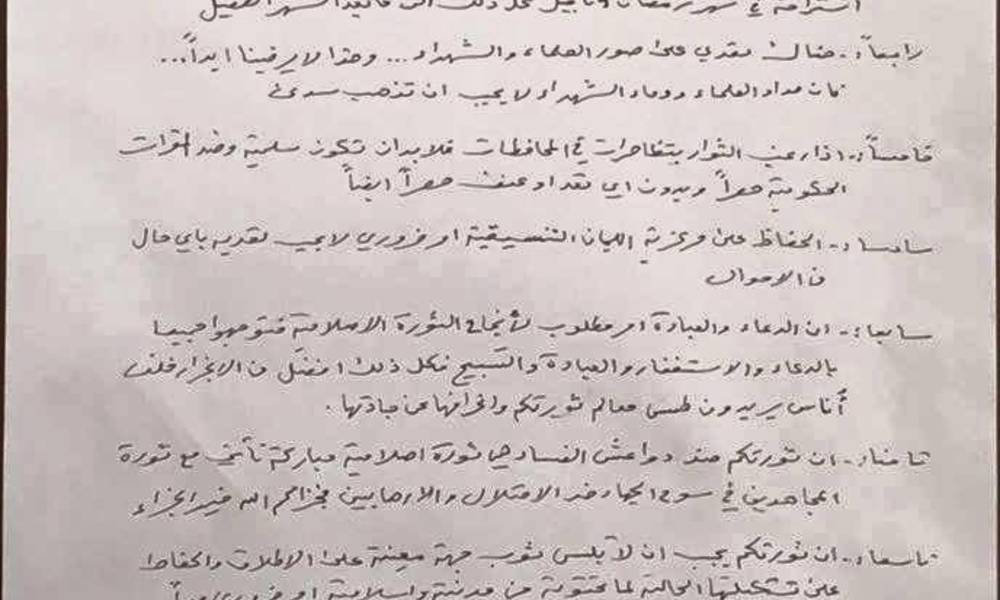 استراحة في شهر رمضان وتأجيل كل ذلك الى ما بعد الشهر الفضيل
رابعاً:- هناك تعدي على صور العلماء والشهداء... وهذا لا يرضينا ابداً...
فان مداد العلماء ودماء الشهداء لا يجب ان تذهب سدى
خامساً:- اذا رغب الثوار بتظاهرات في المحافظات فلابد ان تكون سلمية وضد المقرات
الحكومية حصراً وبدون اي تعدٍ او عنف حصراً ايضاً
سادساً:- الحفاظ على مركزية اللجان التنسيقية امر ضروري لا يجب تعديه باي حال
من الاحوال
سابعاً:- ان الدعاء والعبادة امر مطلوب لأنجاح الثورة الاصلاحية فتوجهوا جميعا
بالدعاء والاستغفار والعبادة والتسبيح فكل ذلك افضل من الانجرار خلف
أُناس يريدون طمس معالم ثورتكم وانحرافها عن جادتها.
ثامناً:- ان ثورتكم ضد دواعش الفساد هي ثورة اصلاحية مباركة تتآخى مع ثورة
المجاهدين في سوح الجهاد ضد الاحتلال والارهابيين فجزاهم الله خير الجزاء
تاسعاً:- ان ثورتكم يجب ان لا تلبس ثوب جهة معينة على الاطلاق والحفاظ
على تشكيلتها الحالية لما تحتويه من مدنية واسلامية امر ضروري جداً